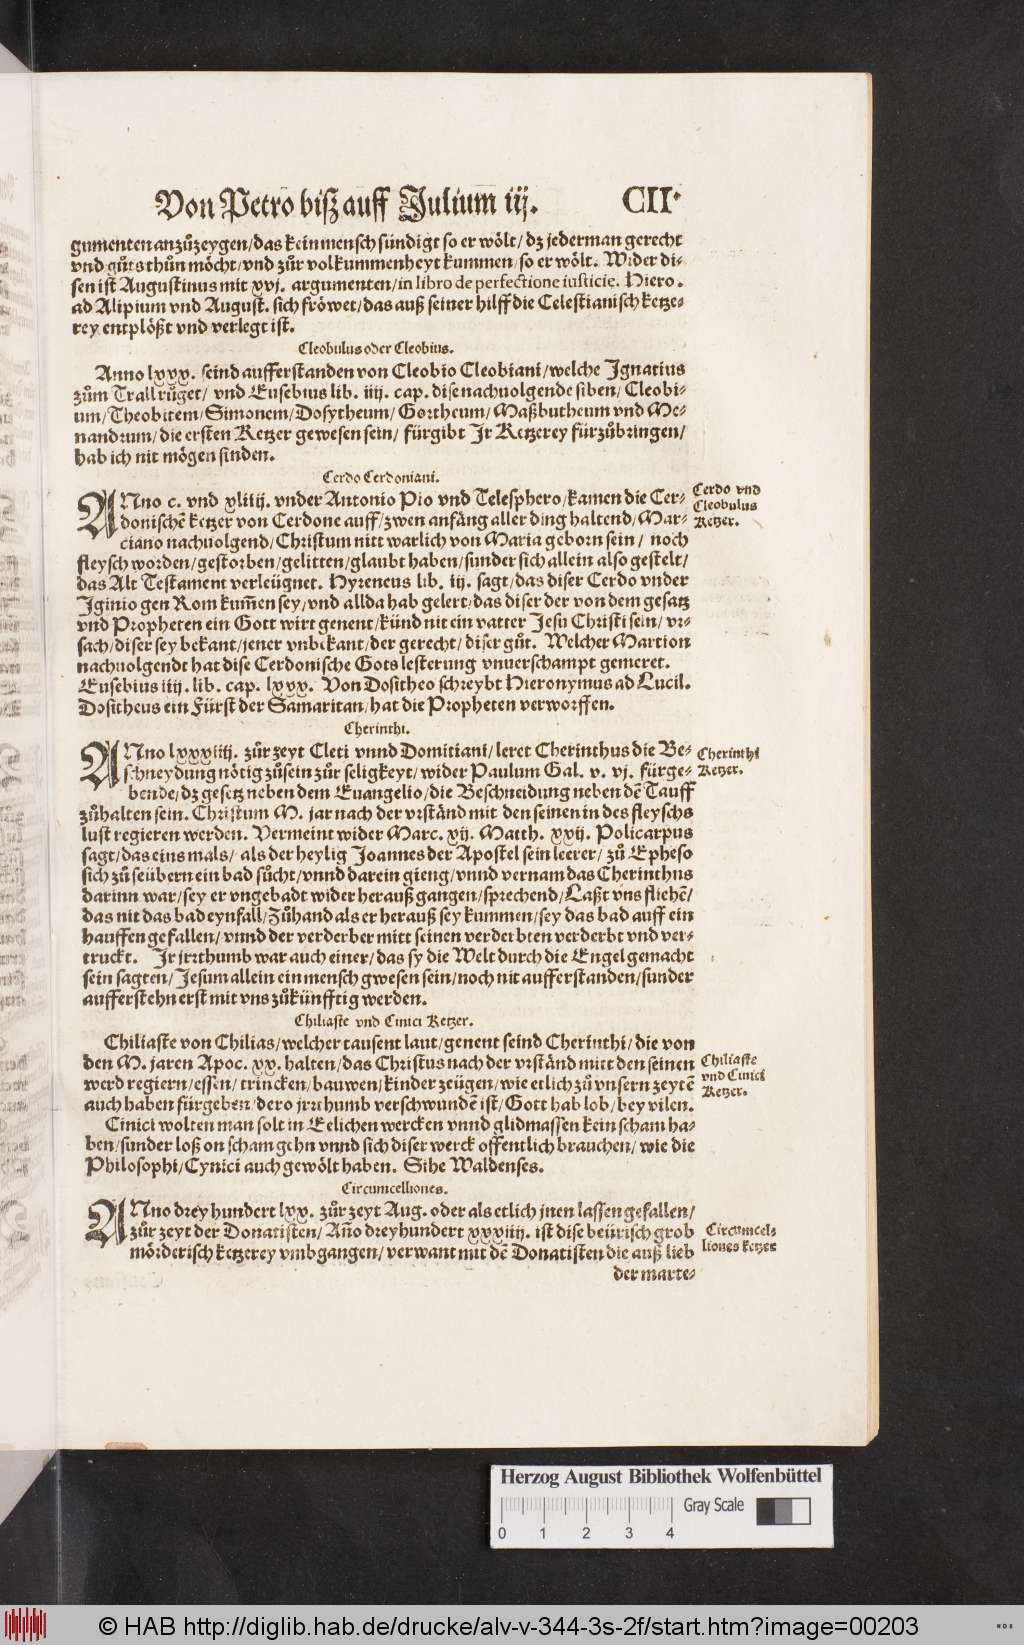 Von Petro biß auff Julium iij. CII.
gumenten anzůzeygen/das kein mensch sündigt so er wölt/dz jederman gerecht
vnd gůts thůn möcht/vnd zůr volkummenheyt kummen/so er wölt. Wider di-
sen ist Augustinus mit xvj. argumenten/in libro de perfectione iusticie. Hiero.
ad Alipium vnd August. sich fröwet/das auß seiner hilff die Celestianisch ketze-
rey entplößt vnd verlegt ist.
Cleobulus oder Cleobius.
Anno lxxx. seind aufferstanden von Cleobio Cleobiani/welche Ignatius
zům Trall rüget/ vnd Eusebius lib. iiij. cap. dise nachuolgende siben/Cleobi-
um/Theobitem/Simonem/Dosytheum/Gortheum/Maßbutheum vnd Me-
nandrum/die ersten Ketzer gewesen sein/ fürgibt Jr Ketzerey fürzůbringen/
hab ich nit mögen finden.
Cerdo Cerdoniani.
ANno c. vnd xliiij. vnder Antonio Pio vnd Telesphero/kamen die Cer-
donischē ketzer von Cerdone auff/zwen anfäng aller ding haltend/Mar-
ciano nachuolgend/Christum nitt warlich von Maria geborn sein/ noch
fleysch worden/gestorben/gelitten/glaubt haben/sunder sich allein also gestelt/
das Alt Testament verleügnet. Hyreneus lib. iij. sagt/das diser Cerdo vnder
Iginio gen Rom kum̄en sey/vnd allda hab gelert/das diser der von dem gesatz
vnd Propheten ein Gott wirt genent/künd nit ein vatter Jesu Christi sein/ vr-
sach/diser sey bekant/jener vnbikant/der gerecht/diser gůt. Welcher Martion
nachuolgendt hat dise Cerdonische Gots lesterung vnuerschampt gemeret.
Eusebius iiij. lib. cap. lxxx. Von Dositheo schreybt Hieronymus ad Lucil.
Dositheus ein Fürst der Samaritan/hat die Propheten verworffen.
Cerdo vnd
Cleobulus
Ketzer.
Cherinthi.
ANno lxxxiiij. zůr zeyt Cleti vnnd Domitiani/leret Cherinthus die Be-
schneydung nötig zůsein zůr seligkeyt/wider Paulum Gal. v. vj. fürge-
bende/dz gesetz neben dem Euangelio/die Beschneidung neben dē Tauff
zůhalten sein. Christum M. jar nach der vrständ mit den seinen in des fleyschs
lust regieren werden. Vermeint wider Marc. xij. Matth. xxij. Policarpus
sagt/das eins mals/ als der heylig Joannes der Apostel sein leerer/ zů Epheso
sich zů seübern ein bad sůcht/vnnd darein gieng/vnnd vernam das Cherinthus
darinn war/sey er vngebadt wider herauß gangen/sprechend/Laßt vns fliehē/
das nit das bad eynfall/Zůhand als er herauß sey kummen/sey das bad auff ein
hauffen gefallen/vnnd der verderber mitt seinen verderbten verderbt vnd ver-
truckt. Jr jrthumb war auch einer/das sy die Welt durch die Engel gemacht
sein sagten/Jesum allein ein mensch gwesen sein/noch nit aufferstanden/sunder
aufferstehn erst mit vns zůkünfftig werden.
Cherinthi
Ketzer.
Chiliaste vnd Cinici Ketzer.
Chiliaste von Chilias/welcher tausent laut/genent seind Cherinthi/die von
den M. jaren Apoc. xx. halten/das Christus nach der vrständ mitt den seinen
werd regiern/essen/ trincken/bauwen/kinder zeügen/wie etlich zů vnsern zeytē
auch haben fürgeben/dero jrrthumb verschwundē ist/Gott hab lob/bey vilen.
Cinici wolten man solt in Eelichen wercken vnnd glidmassen kein scham ha-
ben/sunder loß on scham gehn vnnd sich diser werck offentlich brauchen/ wie die
Philosophi/Cynici auch gewölt haben. Sihe Waldenses.
Chiliaste
vnd Cinici
Ketzer.
Circumcelliones.
ANno drey hundert lxx. zůr zeyt Aug. oder als etlich jnen lassen gefallen/
zůr zeyt der Donatisten/An̄o dreyhundert xxxiiij. ist dise beürisch grob
mörderisch ketzerey vmbgangen/verwant mit dē Donatisten die auß lieb
der marte-
Circumcel-
liones ketzer
Herzog August Bibliothek Wolfenbüttel
0 1 2 3 4 Gray Scale
© HAB http://diglib.hab.de/drucke/alv-v-344-3s-2f/start.htm?image=00203